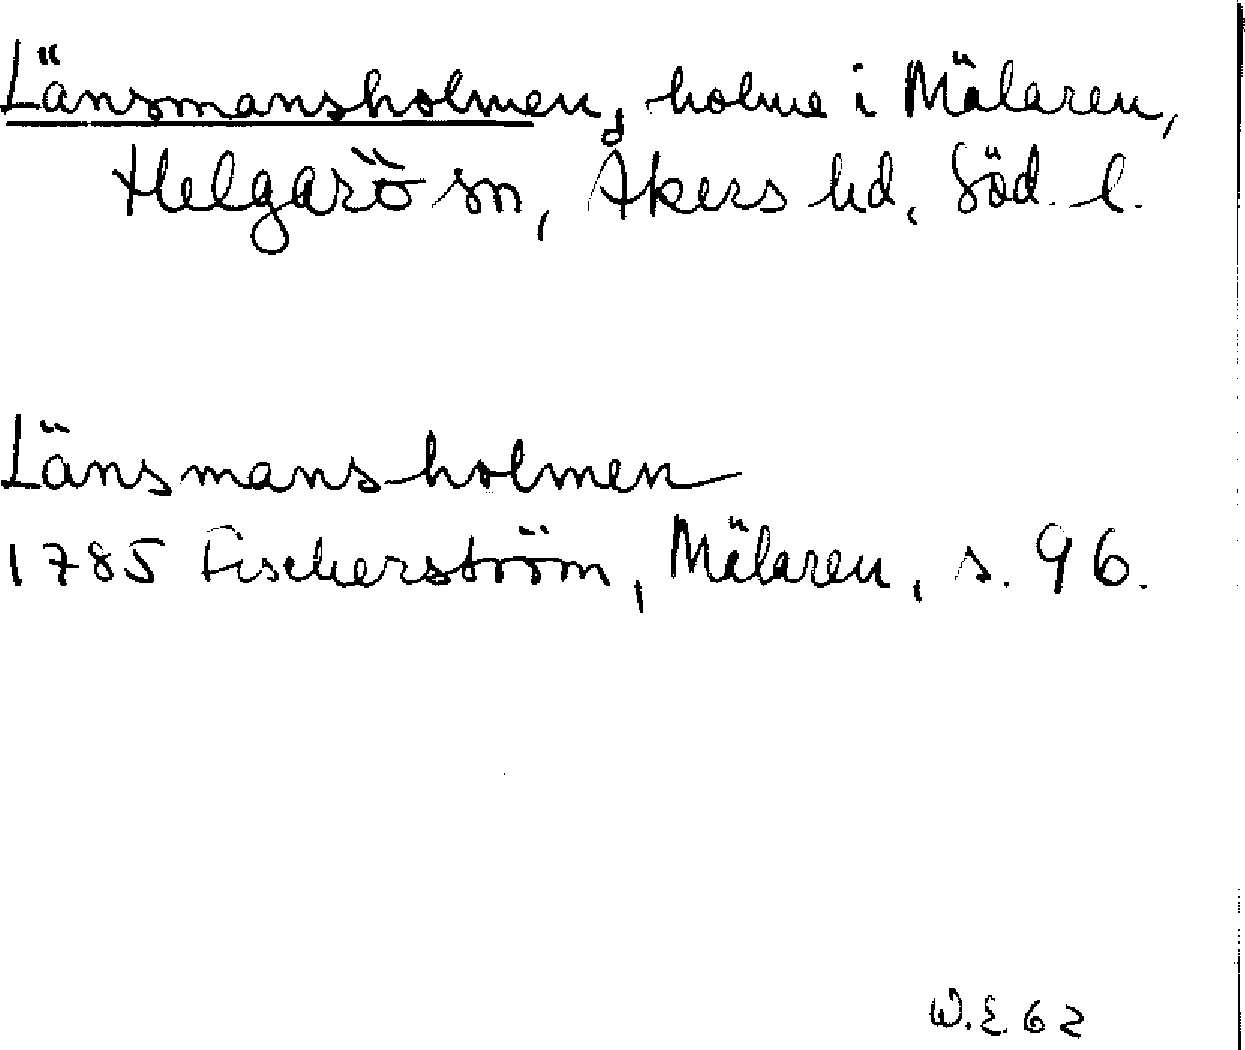 Länsmansholmen, holme i Mälaren,
Helgarö sn, Åkers hd, Söd. l.
Länsmansholmen
1785 Fischerström, Mälaren, s. 96.
W.E. 62